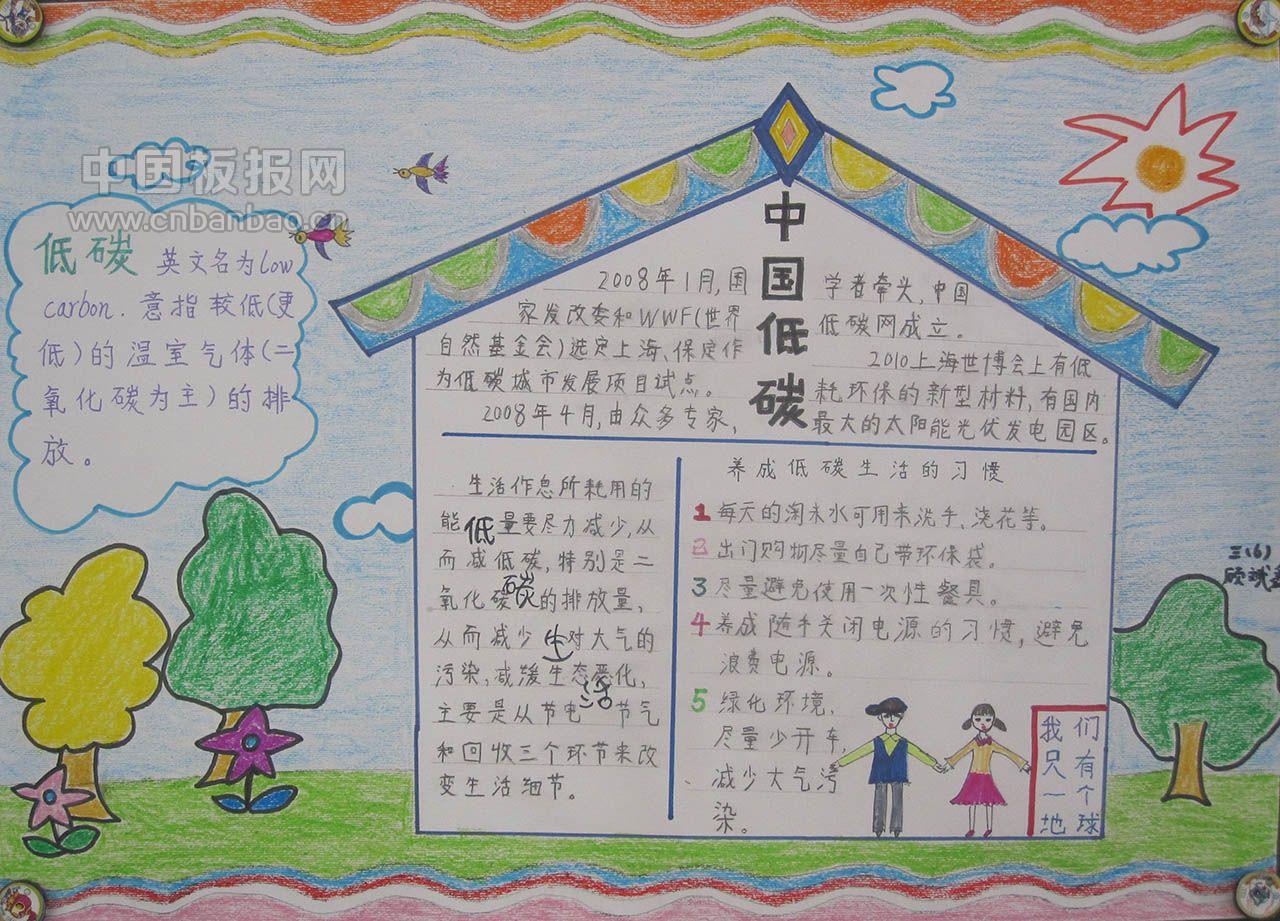 中国板报网
www.cnbanbao.cn
低碳 英文名为low
carbon.意指较低(更
低)的温室气体(二
氧化碳为主)的排
放。
中国低碳
2008年1月,国
家发改委和WWF(世界
自然基金会)选定上海、保定作
为低碳城市发展项目试点。
2008年4月,由众多专家,
学者牵头,中国
低碳网成立。
2010上海世博会上有低
耗环保的新型材料,有国内
最大的太阳能光伏发电园区。
低碳生活
生活作息所耗用的
能量要尽力减少,从
而减低碳,特别是二
氧化碳的排放量,
从而减少对大气的
污染,减缓生态恶化,
主要是从节电 节气
和回收三个环节来改
变生活细节。
养成低碳生活的习惯
1 每天的淘米水可用来洗手、浇花等。
2 出门购物尽量自己带环保袋。
3 尽量避免使用一次性餐具。
4 养成随手关闭电源的习惯,避免
浪费电源。
5 绿化环境,
尽量少开车,
减少大气污
染。
我们
只有
一个
地球
三(6)